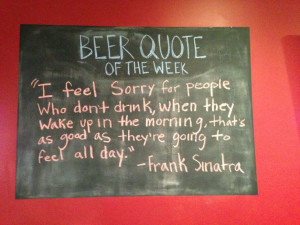 BEER QUOTE
OF THE WEEK
"I feel Sorry for people
Who don't drink, when they
Wake up in the morning, that's
as good as they're going to
feel all day."
-Frank Sinatra